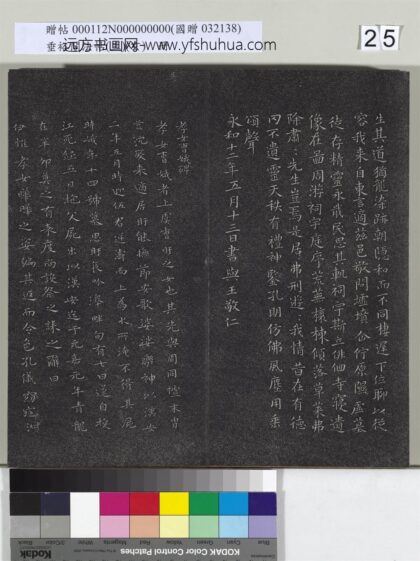 贈帖 000112N000000000(國贈 032138)
远方书画网 www.yfshuhua.com
25
生其道猶龍染跡朝隱和而不同棲遲下位聊以從
容我來自東言適茲邑敬問墟墳企佇原隰虛墓
徒存精靈永戢民思其軌祠宇斯立俳佪寺寢遺
像在圖周游祠宇庭序荒蕪榱棟傾落草萊弗
除肅〻先生豈焉是居弗刑遊〻我情昔在有德
罔不遺靈天秩有禮神鑒孔明仿佛風塵用垂
頌聲
永和十二年五月十三日書與王敬仁
孝女曹娥碑
孝女曹娥者上虞曹盱之女也其先與周同祖末胄
荒沉爰來適居盱能撫節安歌婆娑樂神以漢安
二年五月時迎伍君逆濤而上為水所淹不得其屍
時娥年十四號慕思盱哀吟澤畔旬有七日遂自投
江死經五日抱父屍出以漢安迄于元嘉元年青龍
在辛卯莫之有表度尚設祭之誄之辭曰
伊惟孝女曄曄之姿偏其返而令色孔儀窈窕淑
Kodak
KODAK Color Control Patches
Blue
Cyan
Green
Yellow
Red
Magenta
White
3/Color
Black